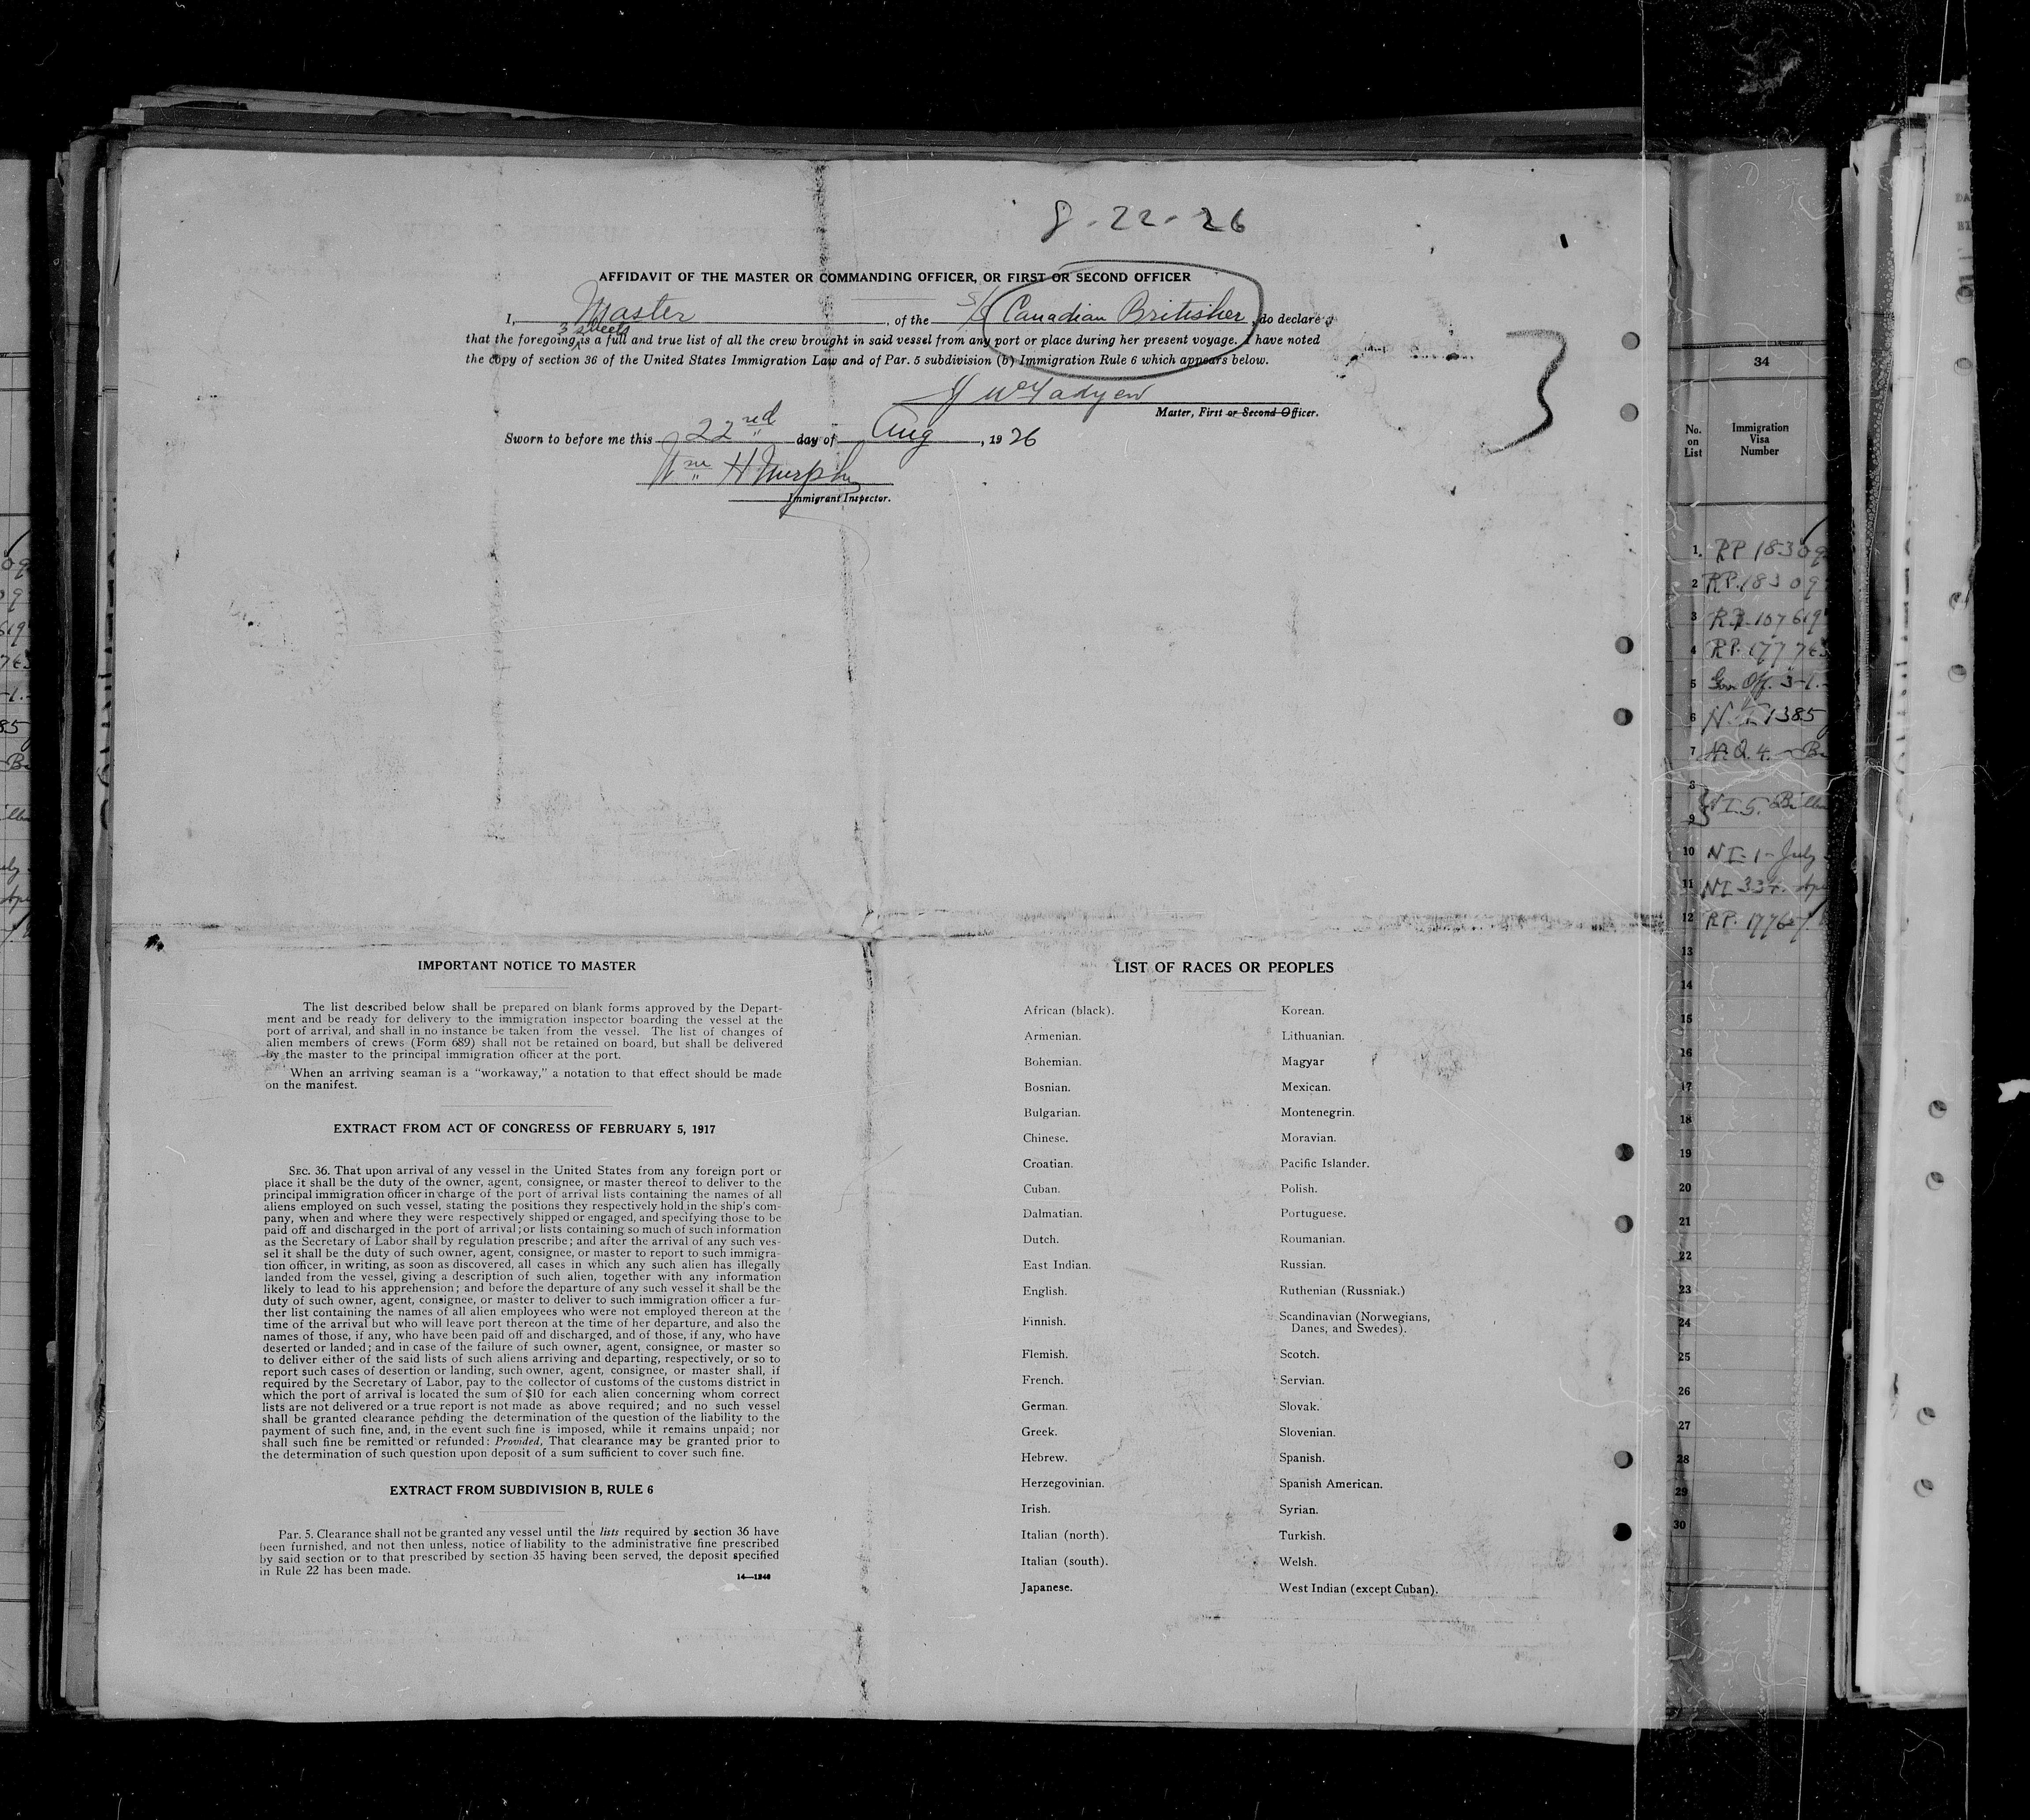 8-22-26
AFFIDAVIT OF THE MASTER OR COMMANDING OFFICER, OR FIRST OR SECOND OFFICER
I, Master, of the S/S Canadian Britisher, do declare
3 sheets
that the foregoing is a full and true list of all the crew brought in said vessel from any port or place during her present voyage. I have noted
the copy of section 36 of the United States Immigration Law and of Par. 5 subdivision (b) Immigration Rule 6 which appears below.
3
J McFadyen
Master, First or Second Officer.
Sworn to before me this 22nd day of Aug, 1926
Wm H Murphy
Immigrant Inspector.
IMPORTANT NOTICE TO MASTER
The list described below shall be prepared on blank forms approved by the Depart-
ment and be ready for delivery to the immigration inspector boarding the vessel at the
port of arrival, and shall in no instance be taken from the vessel. The list of changes of
alien members of crews (Form 689) shall not be retained on board, but shall be delivered
by the master to the principal immigration officer at the port.
When an arriving seaman is a "workaway," a notation to that effect should be made
on the manifest.
EXTRACT FROM ACT OF CONGRESS OF FEBRUARY 5, 1917
SEC. 36. That upon arrival of any vessel in the United States from any foreign port or
place it shall be the duty of the owner, agent, consignee, or master thereof to deliver to the
principal immigration officer in charge of the port of arrival lists containing the names of all
aliens employed on such vessel, stating the positions they respectively hold in the ship's com-
pany, when and where they were respectively shipped or engaged, and specifying those to be
paid off and discharged in the port of arrival; or lists containing so much of such information
as the Secretary of Labor shall by regulation prescribe; and after the arrival of any such ves-
sel it shall be the duty of such owner, agent, consignee, or master to report to such immigra-
tion officer, in writing, as soon as discovered, all cases in which any such alien has illegally
landed from the vessel, giving a description of such alien, together with any information
likely to lead to his apprehension; and before the departure of any such vessel it shall be the
duty of such owner, agent, consignee, or master to deliver to such immigration officer a fur-
ther list containing the names of all alien employees who were not employed thereon at the
time of the arrival but who will leave port thereon at the time of her departure, and also the
names of those, if any, who have been paid off and discharged, and of those, if any, who have
deserted or landed; and in case of the failure of such owner, agent, consignee, or master so
to deliver either of the said lists of such aliens arriving and departing, respectively, or so to
report such cases of desertion or landing, such owner, agent, consignee, or master shall, if
required by the Secretary of Labor, pay to the collector of customs of the customs district in
which the port of arrival is located the sum of $10 for each alien concerning whom correct
lists are not delivered or a true report is not made as above required; and no such vessel
shall be granted clearance pending the determination of the question of the liability to the
payment of such fine, and, in the event such fine is imposed, while it remains unpaid; nor
shall such fine be remitted or refunded: Provided, That clearance may be granted prior to
the determination of such question upon deposit of a sum sufficient to cover such fine.
EXTRACT FROM SUBDIVISION B, RULE 6
Par. 5. Clearance shall not be granted any vessel until the lists required by section 36 have
been furnished, and not then unless, notice of liability to the administrative fine prescribed
by said section or to that prescribed by section 35 having been served, the deposit specified
in Rule 22 has been made.
14—1246
LIST OF RACES OR PEOPLES
African (black).
Armenian.
Bohemian.
Bosnian.
Bulgarian.
Chinese.
Croatian.
Cuban.
Dalmatian.
Dutch.
East Indian.
English.
Finnish.
Flemish.
French.
German.
Greek.
Hebrew.
Herzegovinian.
Irish.
Italian (north).
Italian (south).
Japanese.
Korean.
Lithuanian.
Magyar
Mexican.
Montenegrin.
Moravian.
Pacific Islander.
Polish.
Portuguese.
Roumanian.
Russian.
Ruthenian (Russniak.)
Scandinavian (Norwegians,
Danes, and Swedes).
Scotch.
Servian.
Slovak.
Slovenian.
Spanish.
Spanish American.
Syrian.
Turkish.
Welsh.
West Indian (except Cuban).
34
No.
on
List
Immigration
Visa
Number
1. RP 18309
2 RP. 18309
3 RP 107619
4 RP. 17776
5 Off. 3-1-
6 N.I. 1385
7 Q 4.
8
9 NI 5.
10 NI-1-July
11 NI 334.
12 RP. 17767
13
14
15
16
17
18
19
20
21
22
23
24
25
26
27
28
29
30